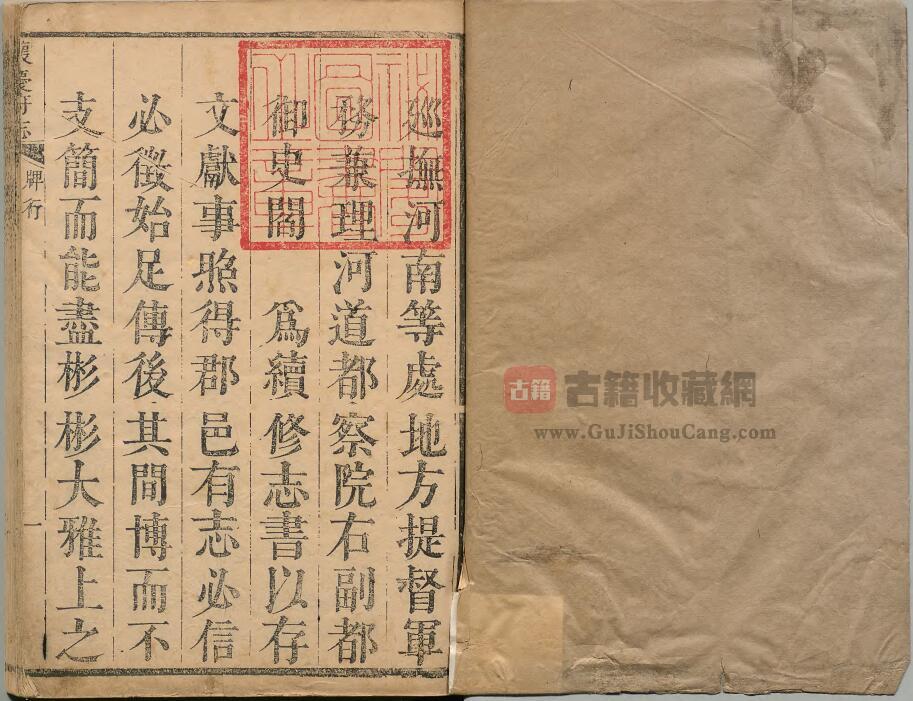 巡撫河南等處地方提督軍
務兼理河道都察院右副都
御史閻　爲續修志書以存
文獻事照得郡邑有志必信
必徵始足傳後其間博而不
支簡而能盡彬彬大雅上之
懷慶府志
牌行
一
古籍
古籍收藏網
www.GuJiShouCang.com